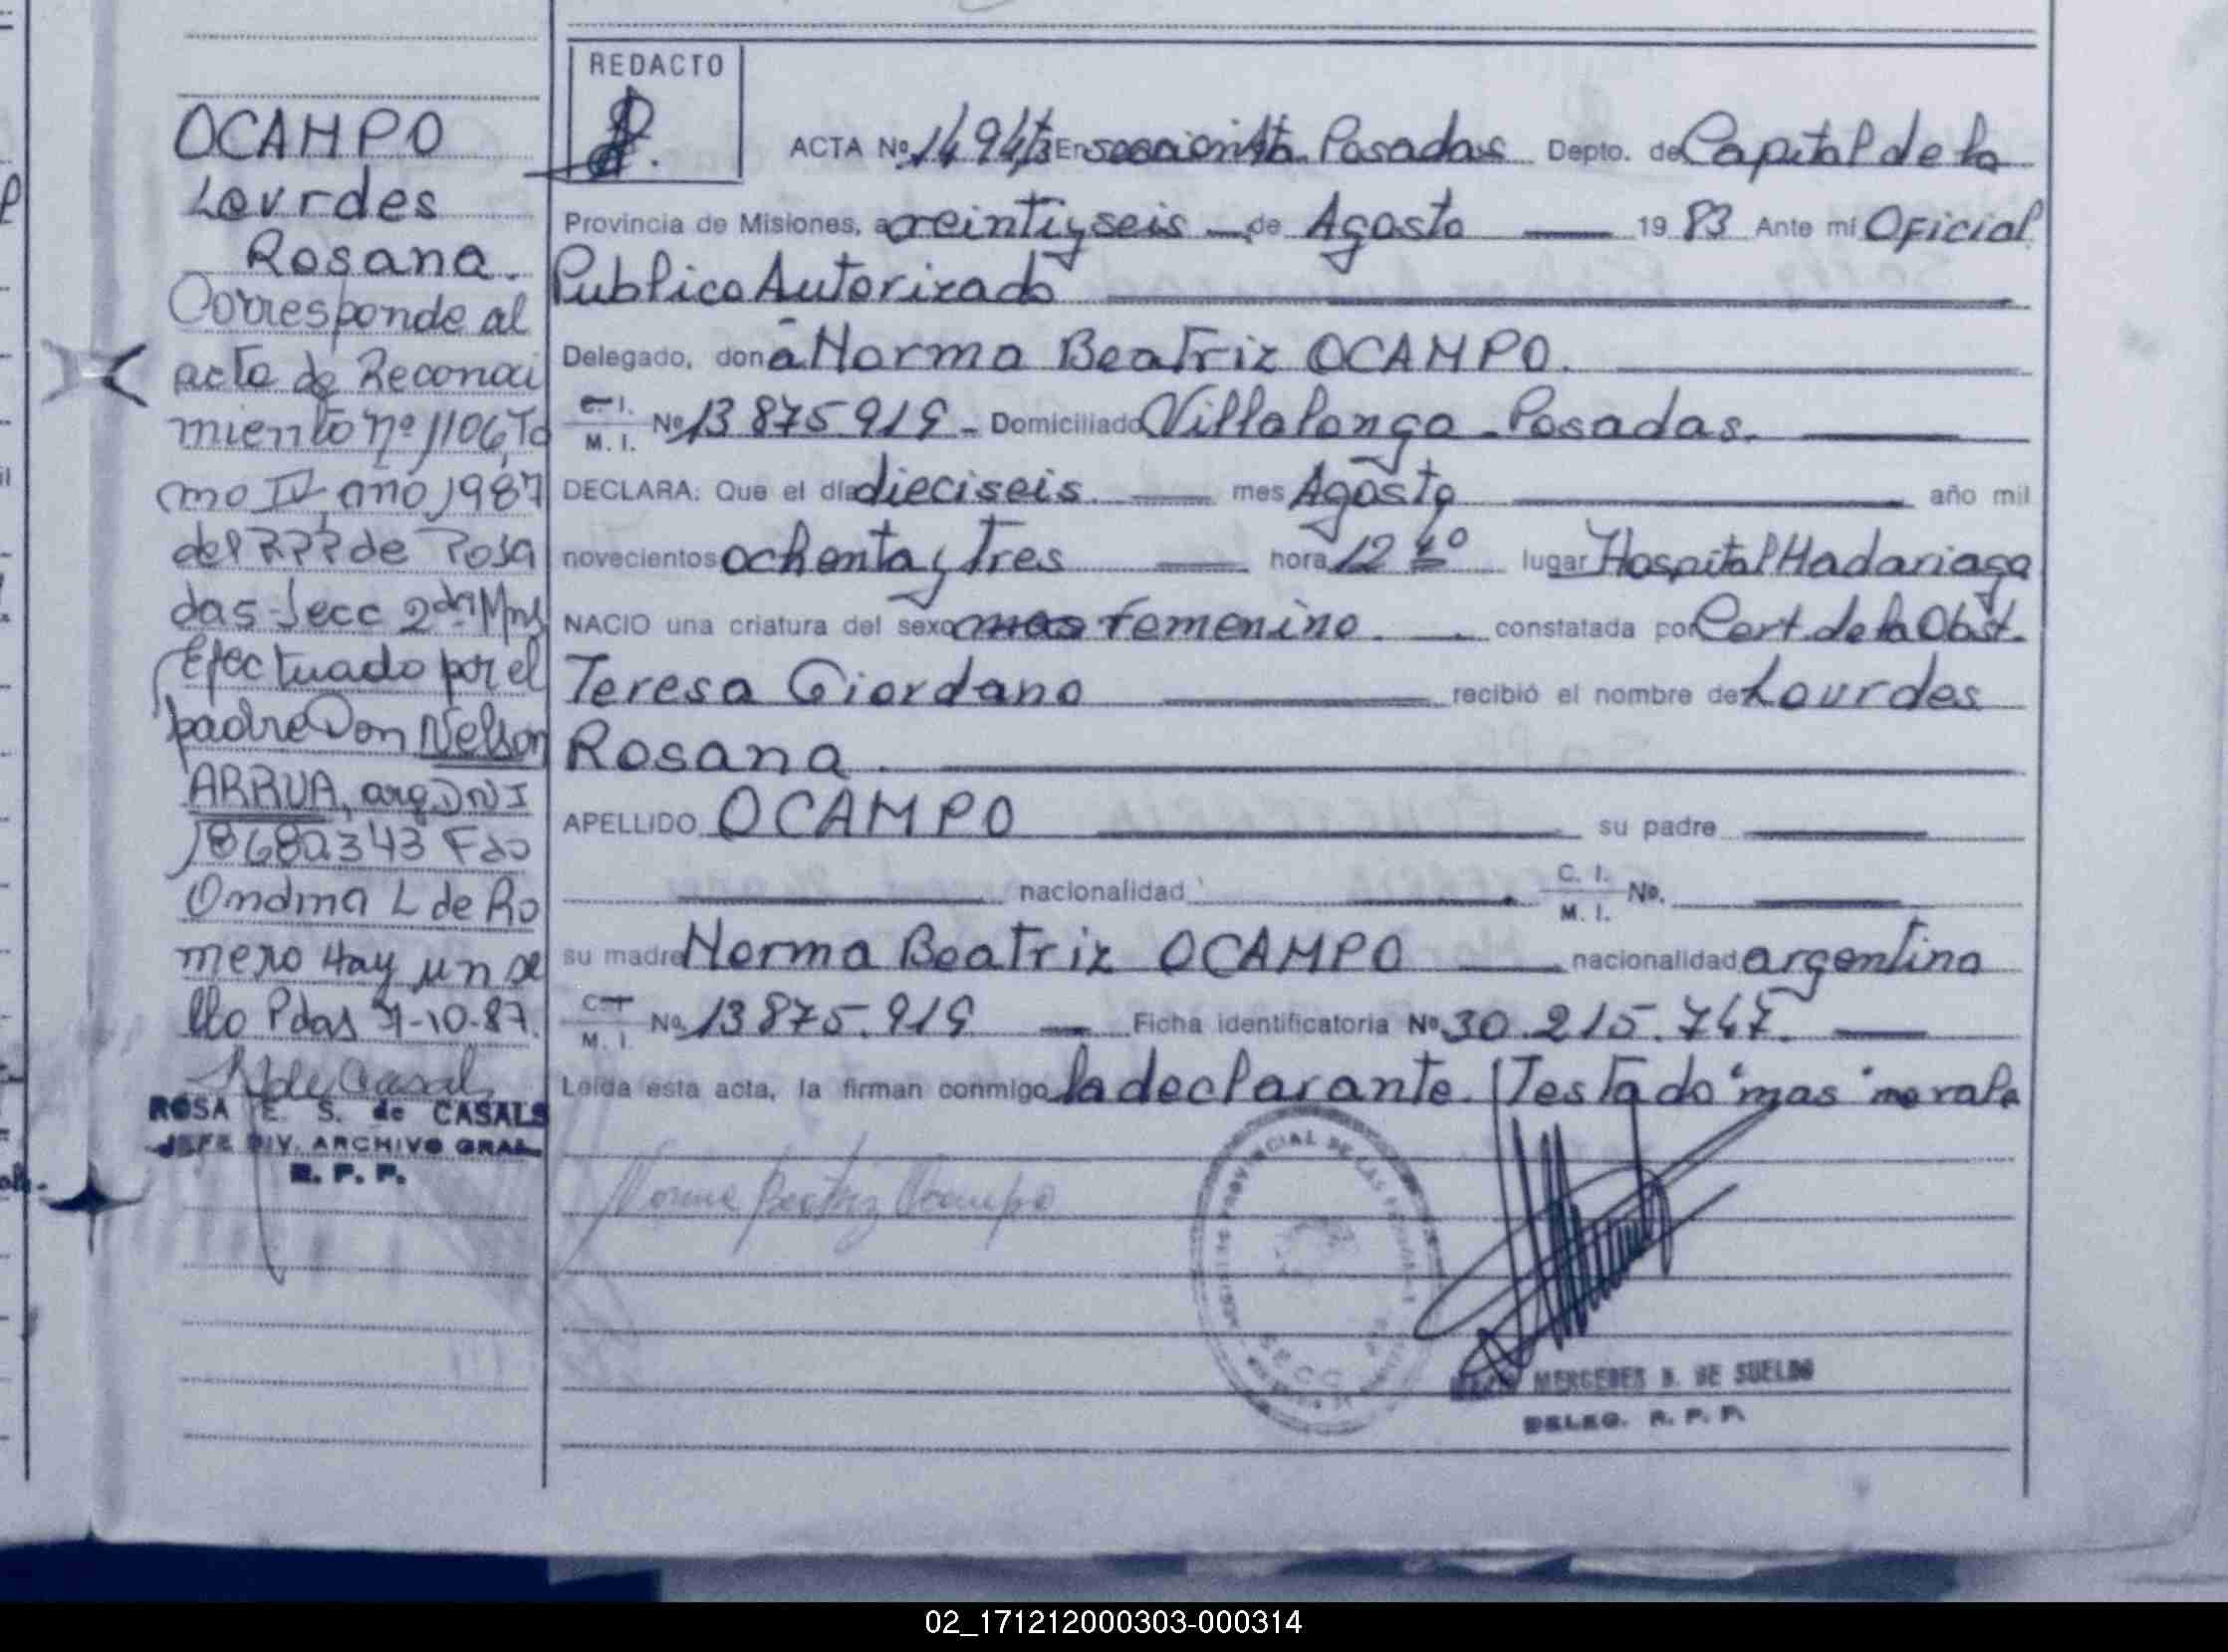 OCAMPO
Lourdes
Rosana.
Corresponde al
acta de Reconoci
miento nº 1106, To
mo IV, ano 1987
del RPP de Posa
das-Secc 2da Mns
Efectuado por el
padre Don Nelson
ARRUA, arg DNI
18682343 Fdo
Ondina L de Ro
mero Hay un se
llo Pdas 7-10-87.
ROSA E. S. de CASALS
JEFE DIV. ARCHIVO GRAL
R. P. P.
REDACTO
ACTA Nº 1494 En Posadas Depto. de Capital de la
Provincia de Misiones, a veintiyseis de Agosto 1983 Ante mi Oficial
Publico Autorizado
Delegado, don a Norma Beatriz OCAMPO.
C. I. M. I. Nº 13875919 - Domiciliado Villalonga - Posadas.
DECLARA: Que el día dieciseis mes Agosto año mil
novecientos ochenta y Tres hora 12 40 lugar Hospital Madariaga
NACIO una criatura del sexo mas Femenino. constatada por Cert. de la Obst.
Teresa Giordano recibió el nombre de Lourdes
Rosana.
APELLIDO OCAMPO su padre
nacionalidad C. I. M. I. No.
su madre Norma Beatriz OCAMPO nacionalidad argentina
C. I. M. I. No. 13875.919 Ficha identificatoria Nº 30.215.747.
Leída esta acta, la firman conmigo la declarante. Testado "mas" no vale
Norma Beatriz Ocampo
MERCEDES B. DE SUELDO
DELEG. R. P. P.
02_171212000303-000314